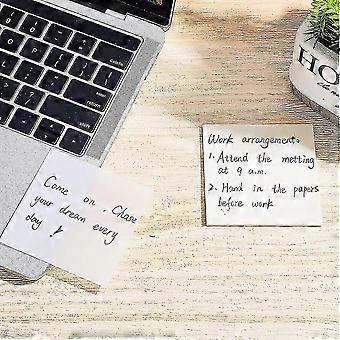 delete
return
shift
HO
Work arrangement:
1. Attend the metting
at 9 a.m.
2. Hand in the papers
before work
Come on , Chase
your dream every
day !